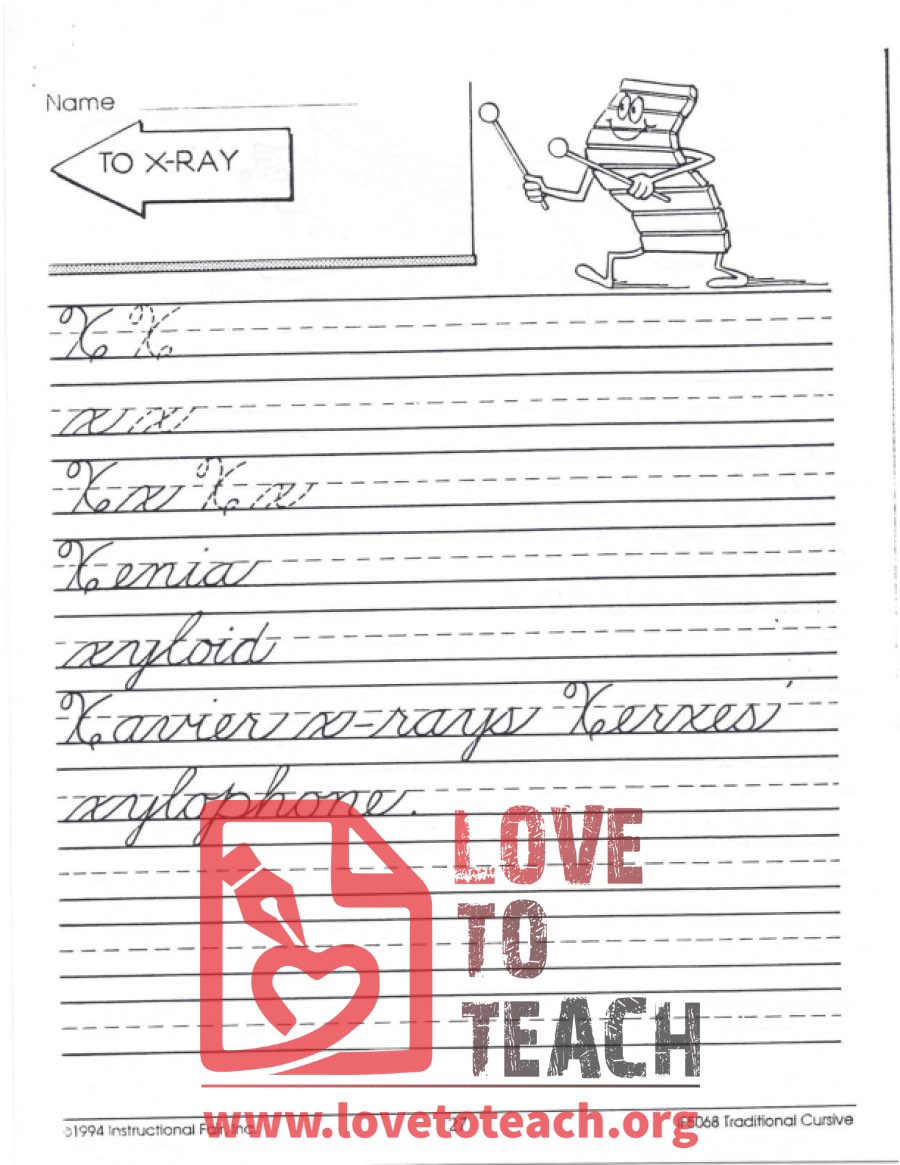 Name
TO X-RAY
X X
x x
Xx Xx
Xenia
xyloid
Xavier x-rays Xerxes'
xylophone.
LOVE
TO
TEACH
www.lovetoteach.org
©1994 Instructional Fair, Inc.
27
IF5068 Traditional Cursive